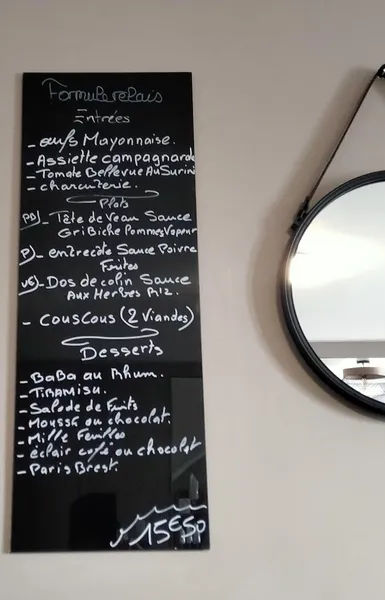 Formule relais
Entrées
- œufs Mayonnaise.
- Assiette campagnarde
- Tomate Bellevue Au Surimi
- charcuterie.
Plats
PD) - Tête de Veau Sauce
GriBiche Pommes Vapeur
P) - entrecôte Sauce Poivre
Frites
VG) - Dos de colin Sauce
Aux Herbes Riz.
- COUSCOUS (2 Viandes)
Desserts
- BaBa au Rhum.
- TiRAMISU.
- Salade de Fruits
- Mousse au chocolat.
- Mille Feuilles
- éclair café ou chocolat
- Paris Brest.
15€50